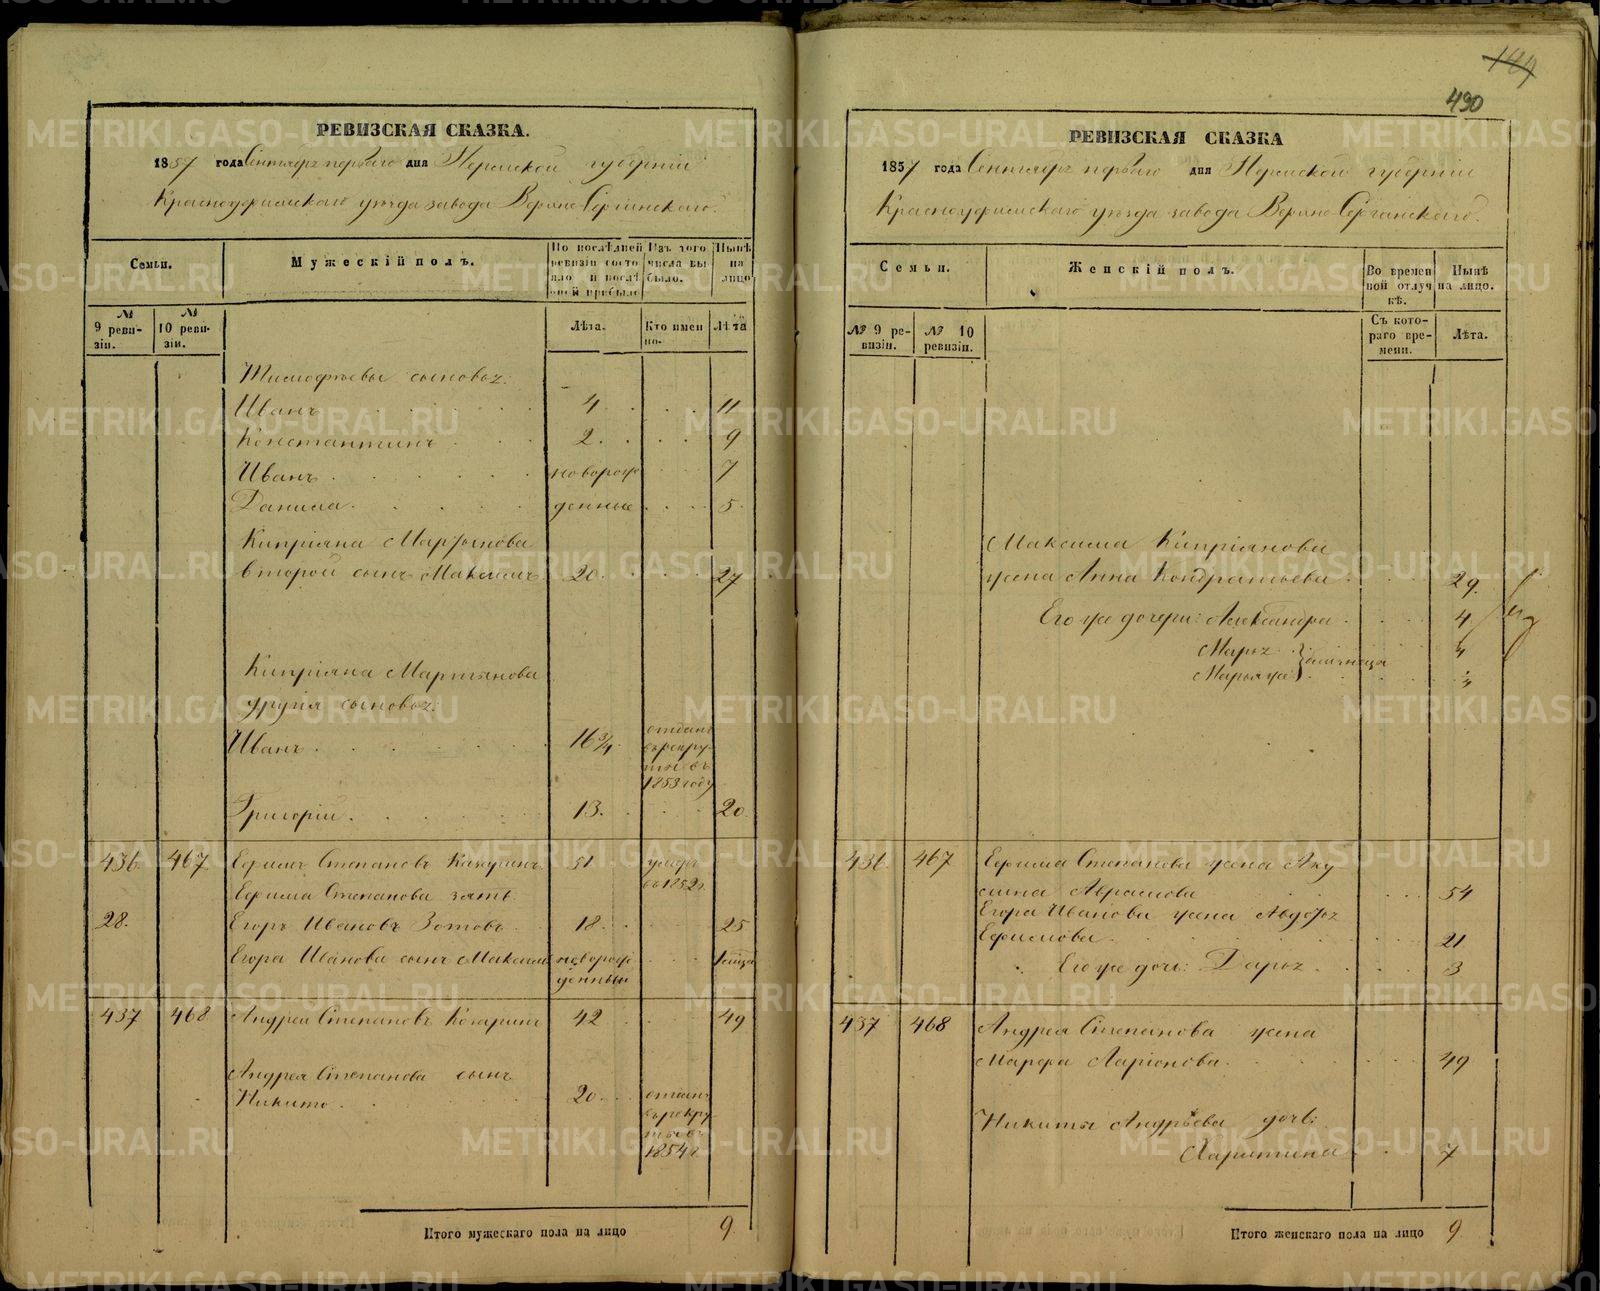 РЕВИЗСКАЯ СКАЗКА.
1857 года Сентября первого дня Пермской губернии
Красноуфимскаго уезда завода Верхне-Сергинскаго.
Семьи.
Мужескій полъ.
По послѣдней ревизіи состояло и послѣ оной прибыло
Изъ того числа выбыло.
Нынѣ на лицо
№ 9 ревизіи.
№ 10 ревизіи.
Лѣта.
Кто имен но.
Лѣта
Тимофеевы сыновья:
Иванъ 4 11
Константинъ 2 9
Иванъ новорож 7
Данила денные 5
Кипріяна Мартьянова
второй сынъ Максимъ 20 27
Кипріяна Мартьянова
другія сыновья:
Иванъ 16 3/4 отданъ въ рекруты въ 1853 году
Григорій 13 20
436 467 Ефимъ Степановъ 51 умеръ въ 1852 г.
Ефима Степанова зять
28. Егоръ Ивановъ Зотовъ 18 25
Егора Иванова сынъ Максимъ новорожденный
437 468 Андрей Степановъ 42 49
Андрея Степанова сынъ
Никита 20 отданъ въ рекруты въ 1854 г.
Итого мужескаго пола на лицо 9
490
РЕВИЗСКАЯ СКАЗКА
1857 года Сентября первого дня Пермской губернии
Красноуфимскаго уезда завода Верхне-Сергинскаго.
Семьи.
Женскій полъ.
Во временной отлучкѣ.
Нынѣ на лицо.
№ 9 ревизіи.
№ 10 ревизіи.
Съ котораго времени.
Лѣта.
Максима Кипріянова
жена Анна Кондратьева 29
Его же дочери: Александра 4
Марья
Марья близнецы
Ефима Степанова жена Аку
436 467
лина Абрамова 54
Егора Иванова жена Авдотья
Ефимова 21
Его же дочь: Дарья 3
437 468 Андрея Степанова жена
Марфа Ларіонова 49
Никиты Андреева дочь:
Харитина 7
Итого женскаго пола на лицо 9
METRIKI.GASO-URAL.RU